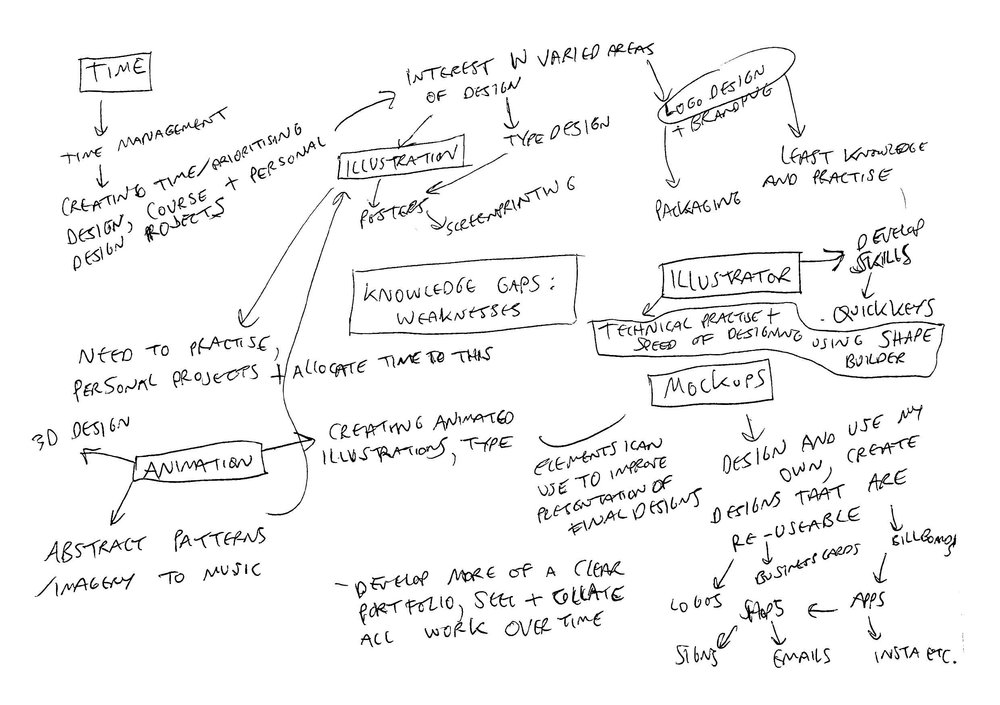 TIME
TIME MANAGEMENT
CREATING TIME/PRIORITISING
DESIGN, COURSE + PERSONAL
DESIGN PROJECTS
INTEREST IN VARIED AREAS
OF DESIGN
ILLUSTRATION
TYPE DESIGN
POSTERS
SCREENPRINTING
LOGO DESIGN
+ BRANDING
PACKAGING
LEAST KNOWLEDGE
AND PRACTISE
KNOWLEDGE GAPS:
WEAKNESSES
ILLUSTRATOR
DEVELOP
SKILLS
QUICKKEYS
TECHNICAL PRACTISE +
SPEED OF DESIGNING
USING SHAPE
BUILDER
NEED TO PRACTISE,
PERSONAL PROJECTS + ALLOCATE TIME TO THIS
3D DESIGN
ANIMATION
CREATING ANIMATED
ILLUSTRATIONS, TYPE
ABSTRACT PATTERNS
/IMAGERY TO MUSIC
MOCKUPS
ELEMENTS I CAN
USE TO IMPROVE
PRESENTATION OF
FINAL DESIGNS
DESIGN AND USE MY
OWN, CREATE
DESIGNS THAT ARE
RE-USEABLE
BUSINESS CARDS
BILLBOARDS
LOGOS
APPS
SIGNS
EMAILS
INSTA ETC.
- DEVELOP MORE OF A CLEAR
PORTFOLIO, SELL + COLLATE
ALL WORK OVER TIME